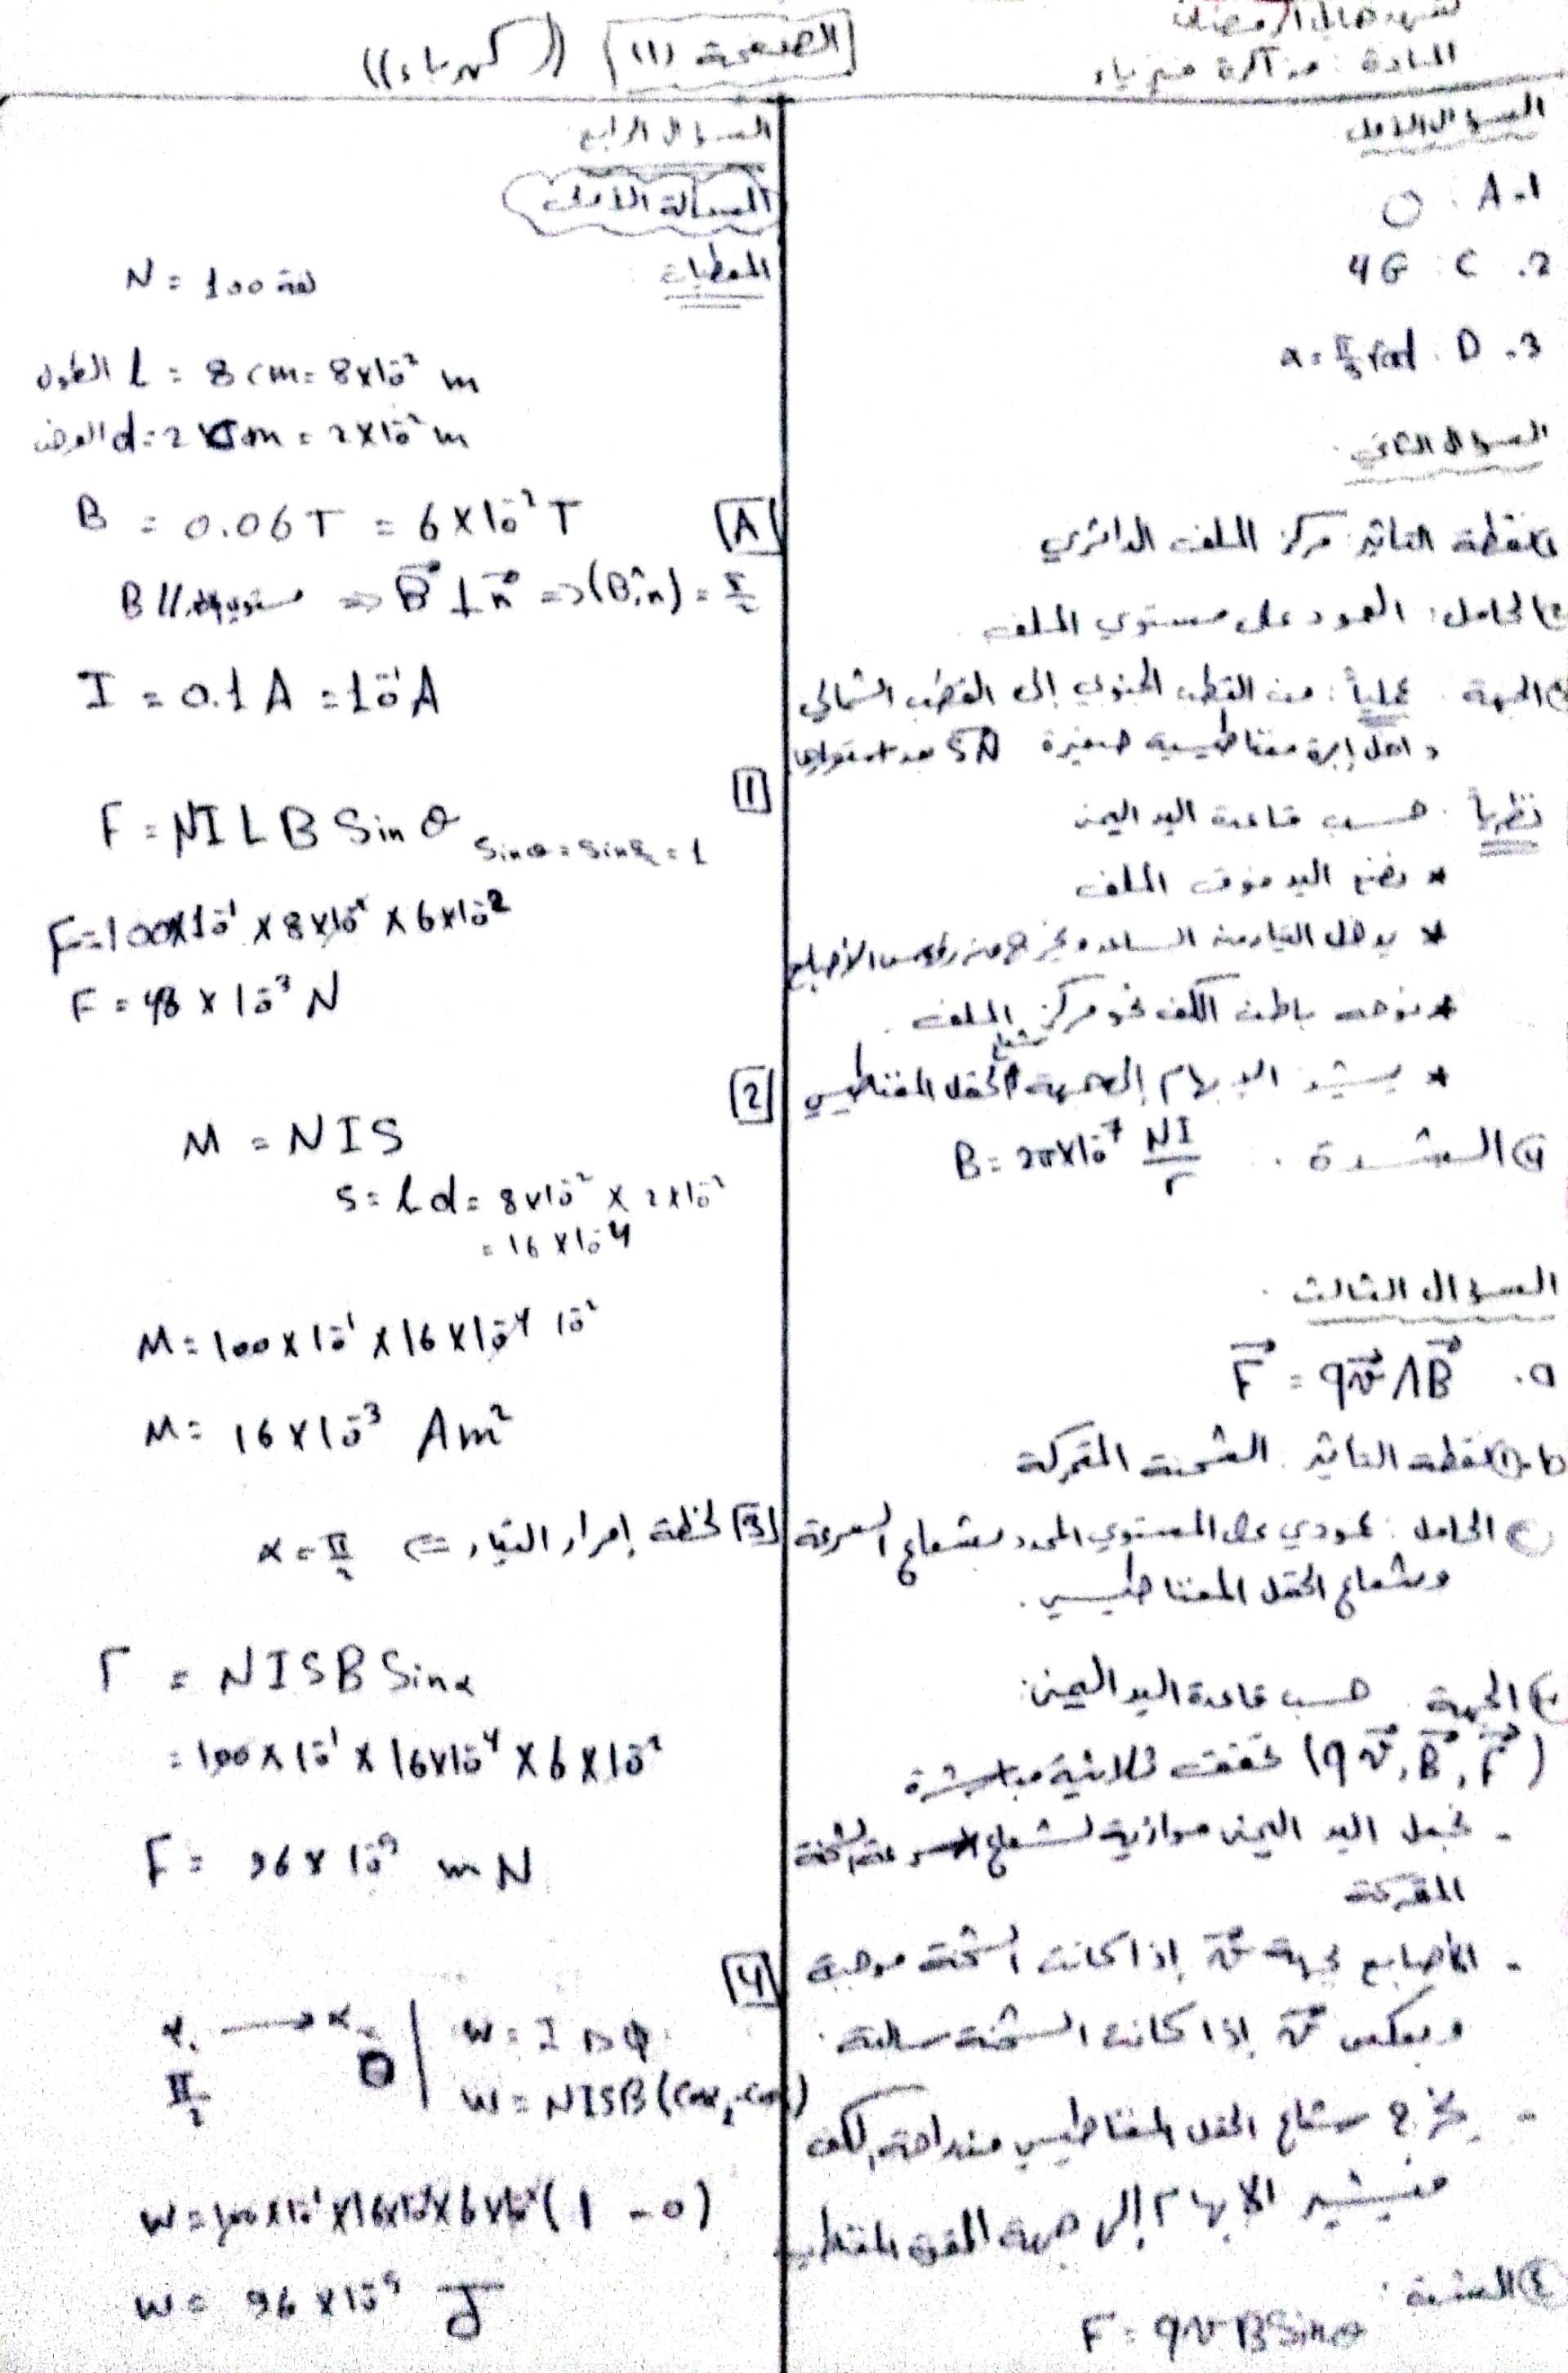 المادة: مذاكرة فيزياء
الصفحة (1) ((كهرباء))
السؤال الأول
1- A: 0
2. C: 4G
3. D: α = π/3 rad
السؤال الثاني
① نقطة التأثير: مركز الملف الدائري
② الحامل: العمود على مستوي الملف
③ الجهة: عملياً: من القطب الجنوبي إلى القطب الشمالي
داخل إبرة مغناطيسية صغيرة SN بعد استقرارها
نظرياً: حسب قاعدة اليد اليمنى
* نضع اليد فوق الملف
* يدخل التيار من الساعد ويخرج من رؤوس الأصابع
* نوجه باطن الكف نحو مركز الملف
* يشير الإبهام إلى جهة شعاع الحقل المغناطيسي
④ الشدة: B = 2π×10⁻⁷ NI/r
السؤال الثالث
a. F⃗ = qv⃗ ∧ B⃗
b- ① نقطة التأثير: الشحنة المتحركة
② الحامل: عمودي على المستوي المحدد بشعاع السرعة
وشعاع الحقل المغناطيسي.
③ الجهة: حسب قاعدة اليد اليمنى:
(qv⃗, B⃗, F⃗) تحقق ثلاثية مباشرة
- نجعل اليد اليمنى موازية لشعاع سرعة الشحنة
المتحركة
- الأصابع بجهة v⃗ إذا كانت الشحنة موجبة
وبعكس v⃗ إذا كانت الشحنة سالبة.
- يخرج شعاع الحقل المغناطيسي من راحة الكف
فيشير الإبهام إلى جهة القوة
④ الشدة:
F = qvB Sinθ
السؤال الرابع
المسألة الأولى
المعطيات:
N = 100 لفة
الطول L = 8 cm = 8×10⁻² m
العرض d = 2 cm = 2×10⁻² m
B = 0.06 T = 6×10⁻² T
A
B // مستوي ⇒ B⃗ ⊥ n⃗ ⇒ (B^n) = π/2
I = 0.1 A = 10⁻¹ A
1
F = NILB Sin θ
Sinθ = Sin π/2 = 1
F = 100×10⁻¹ × 8×10⁻² × 6×10⁻²
F = 48 × 10⁻³ N
2
M = NIS
S = Ld = 8×10⁻² × 2×10⁻²
= 16×10⁻⁴
M = 100 × 10⁻¹ × 16×10⁻⁴ 10⁻²
M = 16×10⁻³ Am²
3 لحظة إمرار التيار ⇐ α = π/2
Γ = NISB Sinα
= 100 × 10⁻¹ × 16×10⁻⁴ × 6×10⁻²
Γ = 96×10⁻⁵ mN
4
α₁ → α₂
π/2 0
W = I ΔΦ
W = NISB (Cosα₂ - Cosα₁)
W = 100×10⁻¹×16×10⁻⁴×6×10⁻² (1 - 0)
W = 96×10⁻⁵ J